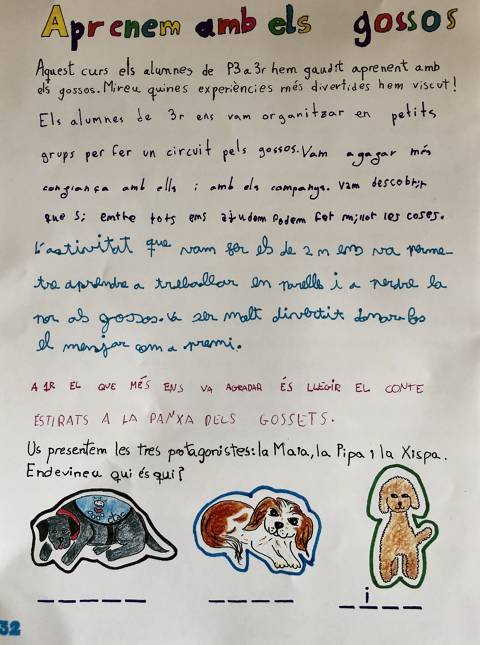 Aprenem amb els gossos
Aquest curs els alumnes de P3 a 3r hem gaudit aprenent amb
els gossos. Mireu quines experiències més divertides hem viscut!
Els alumnes de 3r ens vam organitzar en petits
grups per fer un circuit pels gossos. Vam agagar més
congiança amb ells i amb els companys. Vam descobrir
que si emtre tots ems ajudom podem fer millor les coses.
L'activitat que vam fer els de 2n ens va perme-
tre aprendre a treballar en parella i a perdre la
por als gossos. Va ser molt divertit donar-los
el menjar com a premi.
A 1R EL QUE MÉS ENS VA AGRADAR ÉS LLEGIR EL CONTE
ESTIRATS A LA PANXA DELS GOSSETS.
Us presentem les tres protagonistes: la Maia, la Pipa i la Xispa.
Endevineu qui és qui?
_ _ _ _ _ _ _ _ _ _ i _ _ _
32